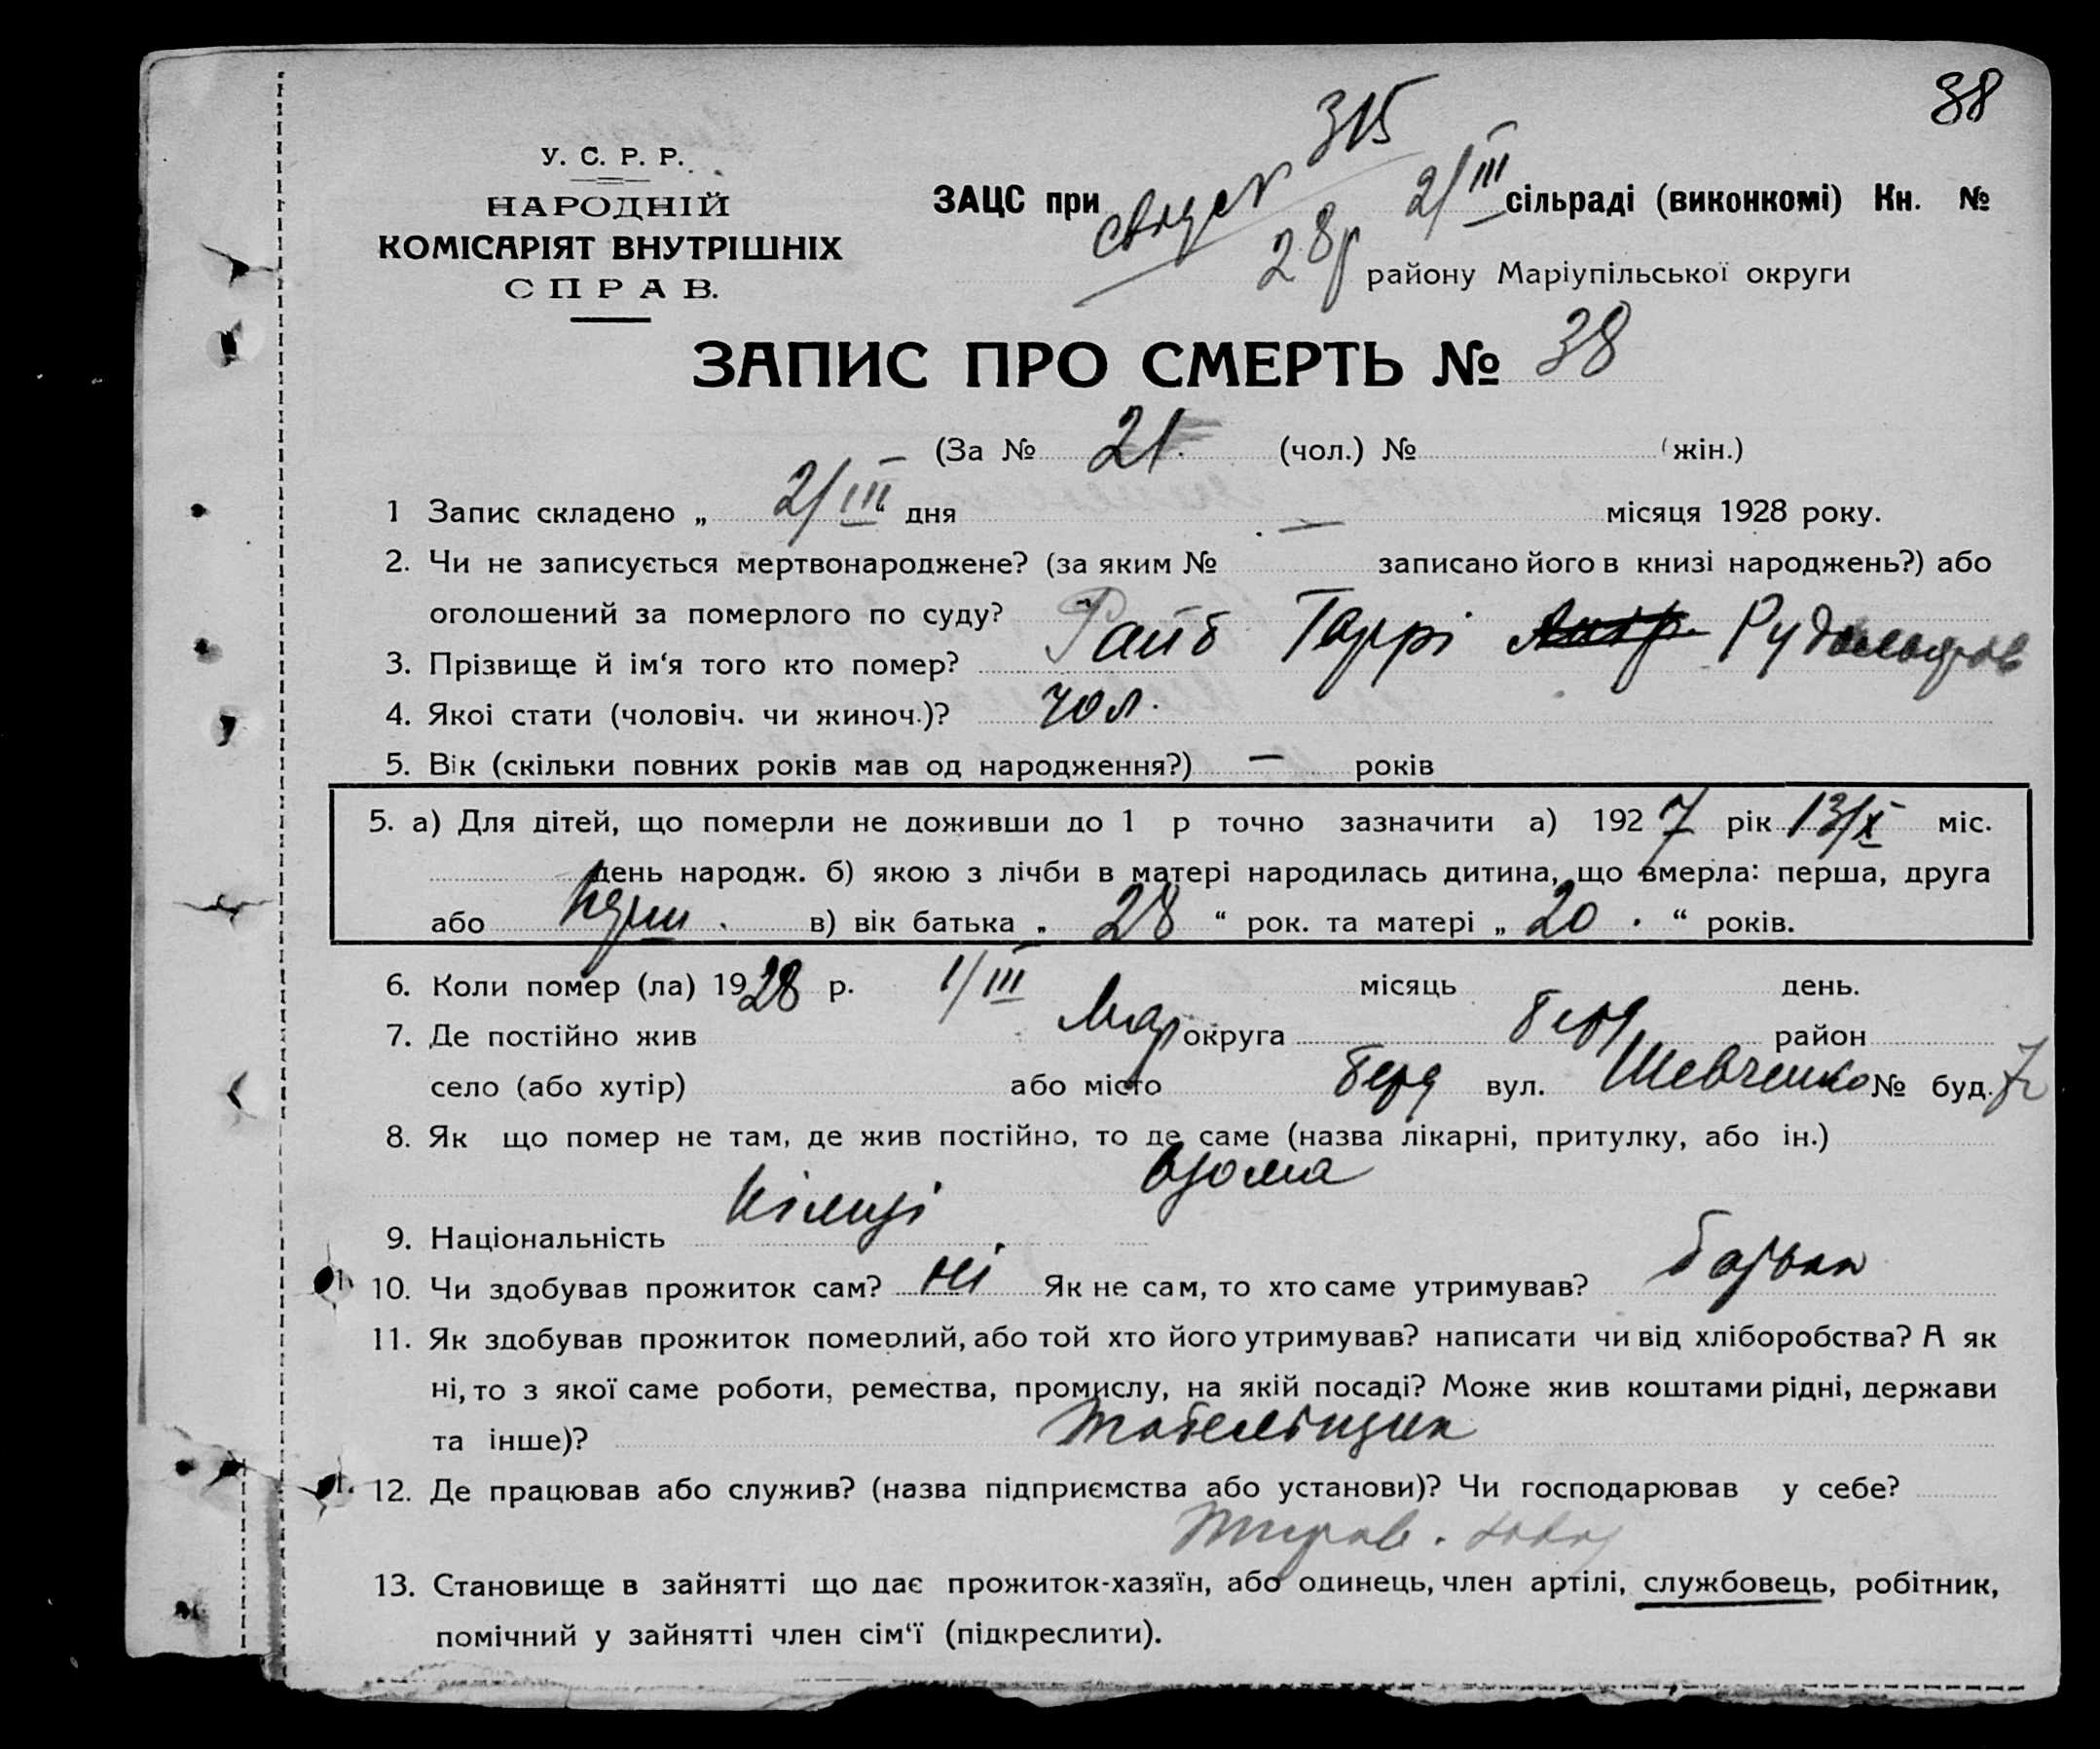 38
315
У. С. Р. Р.
НАРОДНІЙ
КОМІСАРІЯТ ВНУТРІШНІХ
СПРАВ.
ЗАЦС при 2/III сільраді (виконкомі) Кн. №
28р району Маріупільської округи
ЗАПИС ПРО СМЕРТЬ № 38
(За № 21 (чол.) № (жін.)
1 Запис складено „ 2/III дня — місяця 1928 року.
2. Чи не записується мертвонароджене? (за яким № записано його в книзі народжень?) або
оголошений за померлого по суду?
3. Прізвище й ім‘я того кто помер? Райб Гаррі Рудольфов
4. Якоі стати (чоловіч. чи жиноч.)? чол.
5. Вік (скільки повних років мав од народження?) — років
5. а) Для дітей, що померли не доживши до 1 р точно зазначити а) 1927 рік 13/X міс.
день народж. б) якою з лічби в матері народилась дитина, що вмерла: перша, друга
або перш. в) вік батька „ 28 “ рок. та матері „ 20 . “ років.
6. Коли помер (ла) 1928 р. 1/III місяць день.
7. Де постійно жив Мар округа Берд район
село (або хутір) або місто Берд вул. Шевченко № буд. 7
8. Як що помер не там, де жив постійно, то де саме (назва лікарні, притулку, або ін.)
вдома
9. Національність Німці
10. Чи здобував прожиток сам? Ні Як не сам, то хто саме утримував? батько
11. Як здобував прожиток померлий, або той хто його утримував? написати чи від хліборобства? А як
ні, то з якої саме роботи, ремества, промислу, на якій посаді? Може жив коштами рідні, держави
та інше)? табельщик
12. Де працював або служив? (назва підприємства або установи)? Чи господарював у себе?
13. Становище в зайнятті що дає прожиток-хазяїн, або одинець, член артілі, службовець, робітник,
помічний у зайнятті член сім‘ї (підкреслити).